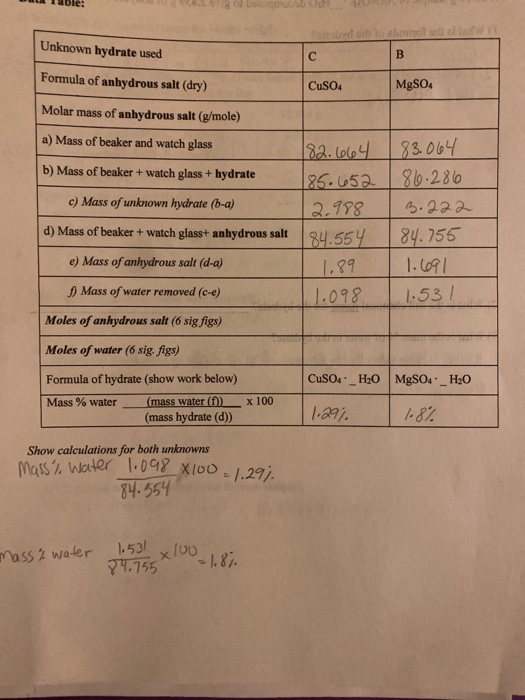 Table:
Unknown hydrate used C B
Formula of anhydrous salt (dry) CuSO₄ MgSO₄
Molar mass of anhydrous salt (g/mole)
a) Mass of beaker and watch glass 82.664 83.064
b) Mass of beaker + watch glass + hydrate 85.652 86.286
c) Mass of unknown hydrate (b-a) 2.988 3.222
d) Mass of beaker + watch glass+ anhydrous salt 84.554 84.755
e) Mass of anhydrous salt (d-a) 1.89 1.691
f) Mass of water removed (c-e) 1.098 1.531
Moles of anhydrous salt (6 sig figs)
Moles of water (6 sig. figs)
Formula of hydrate (show work below) CuSO₄ · _ H₂O MgSO₄ · _ H₂O
Mass % water (mass water (f)) x 100
(mass hydrate (d)) 1.29% 1.8%
Show calculations for both unknowns
Mass % water 1.098 x100 = 1.29%
84.554
mass % water 1.531 x100 = 1.8%
84.755